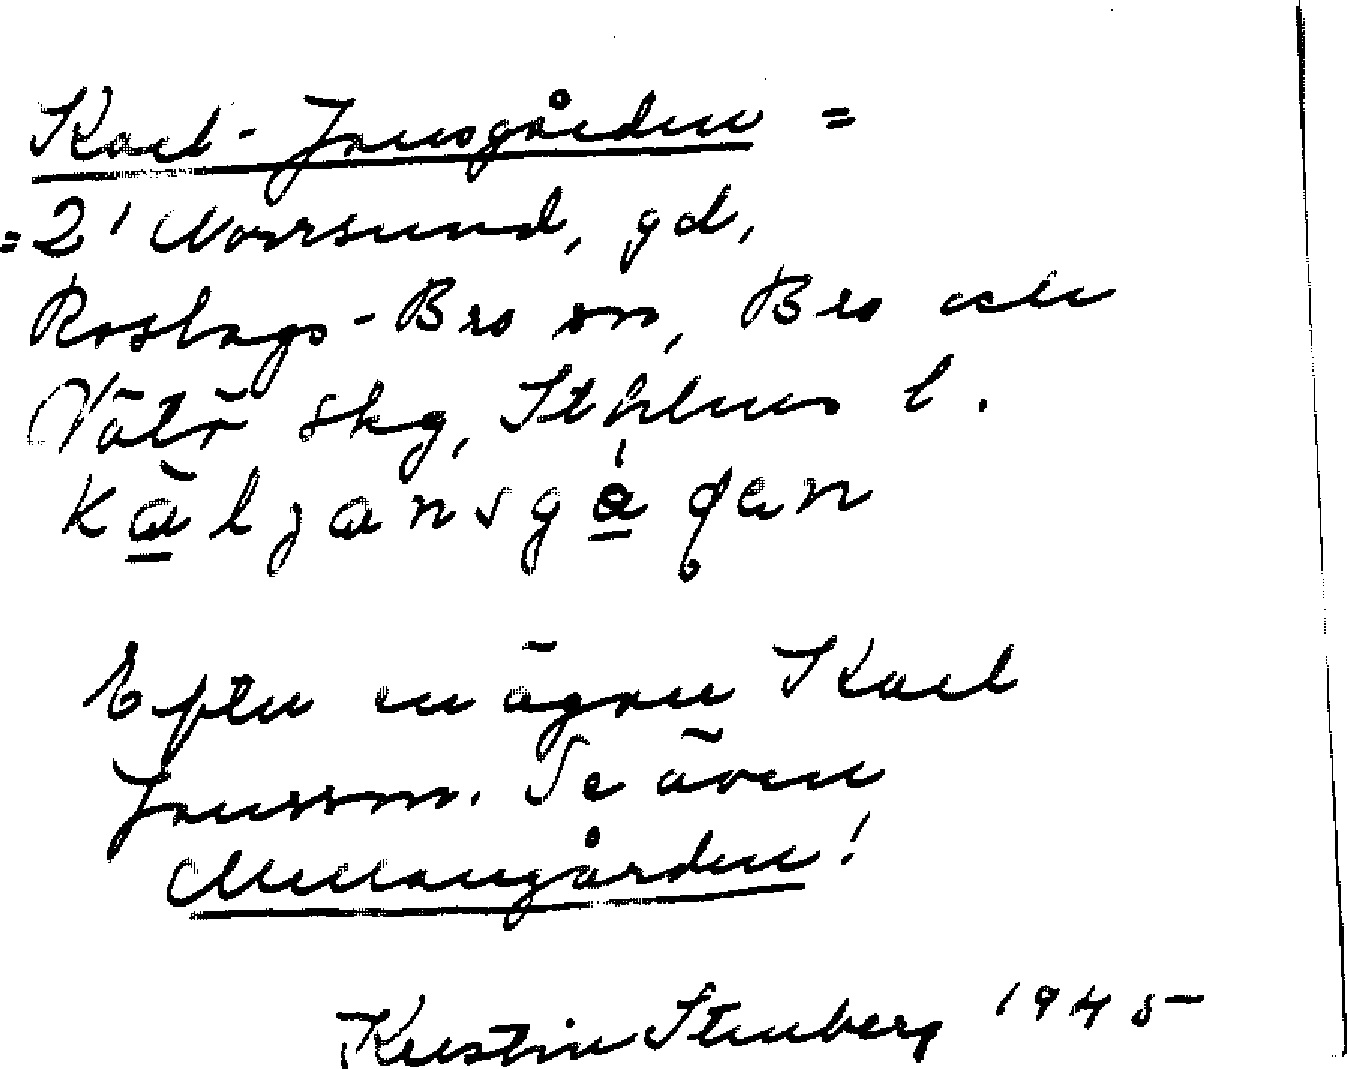 Karl-Jansgården =
= 2' Norrsund, gd,
Roslags-Bro sn, Bro och
Vätö skg, Sthlms l.
Efter en ägare Karl
Jansson. Se även
Mellangården!
Kerstin Stenberg 1945